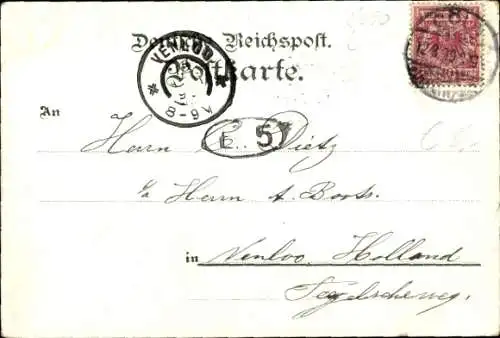 Deutsche Reichspost.
Postkarte.
VENLOO
8-9V
An
Herrn C. Dietz
E 57
p/a Herrn A. Boots.
in Venloo. Holland
Tegelscheweg.